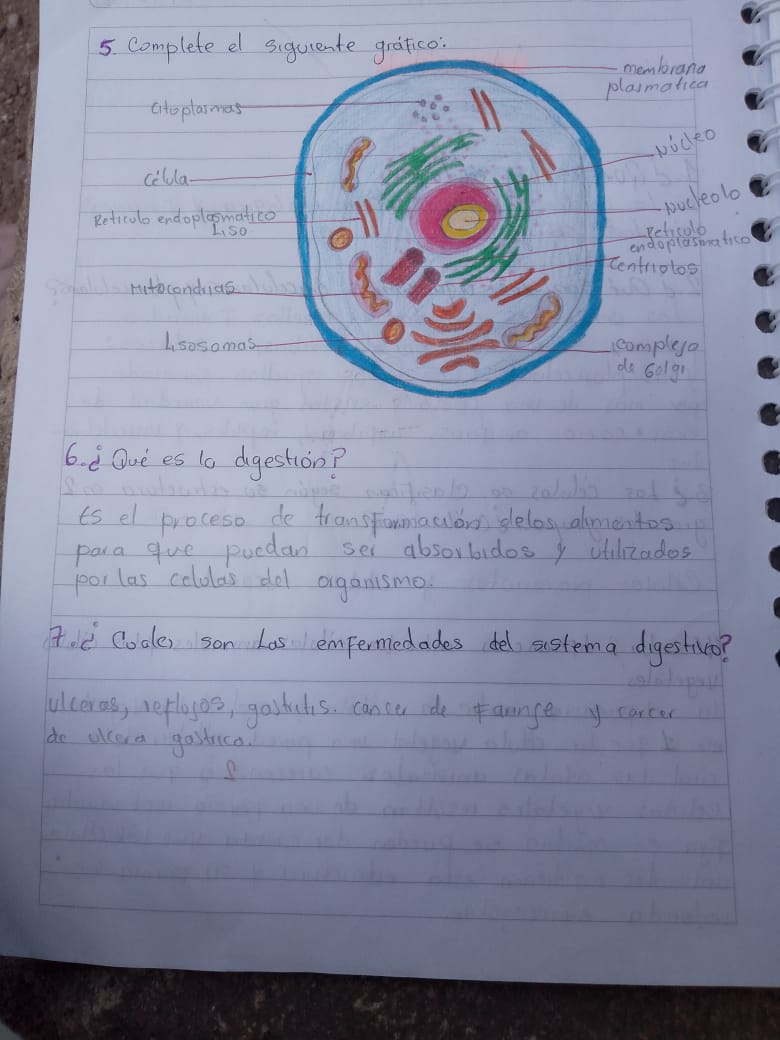 5. Complete el siguiente gráfico:
membrana
plasmatica
Citoplasmas
Núcleo
Célula
Nucleolo
Reticulo endoplasmatico
Liso
Reticulo
endoplasmatico
Centriolos
Mitocondrias
Lisosomas
complejo
de Golgi
6.¿ Qué es la digestión?
Es el proceso de transformación delos alimentos
para que puedan ser absorbidos y utilizados
por las celulas del organismo.
7.¿ Coales son Las enfermedades del sistema digestivo?
ulceras, reflojos, gastritis. cancer de farinfe y carcer
de ulcera gastrica.